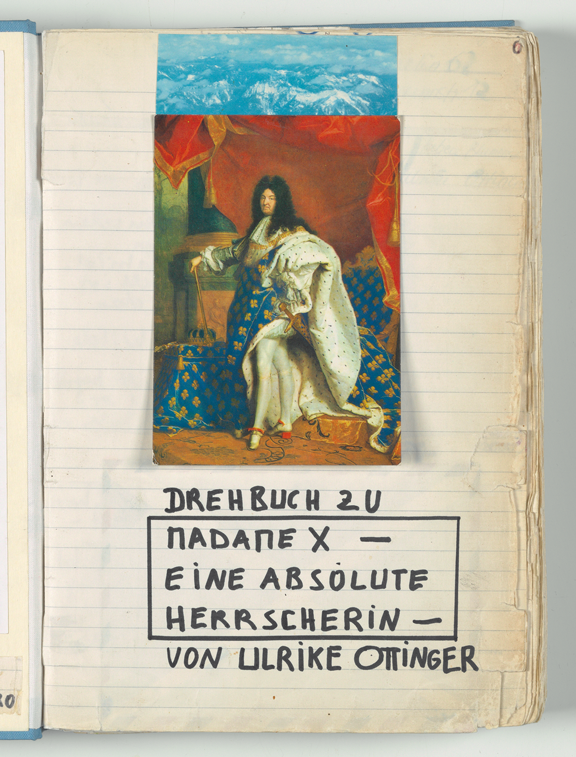 DREHBUCH ZU
MADAME X —
EINE ABSOLUTE
HERRSCHERIN —
VON ULRIKE OTTINGER